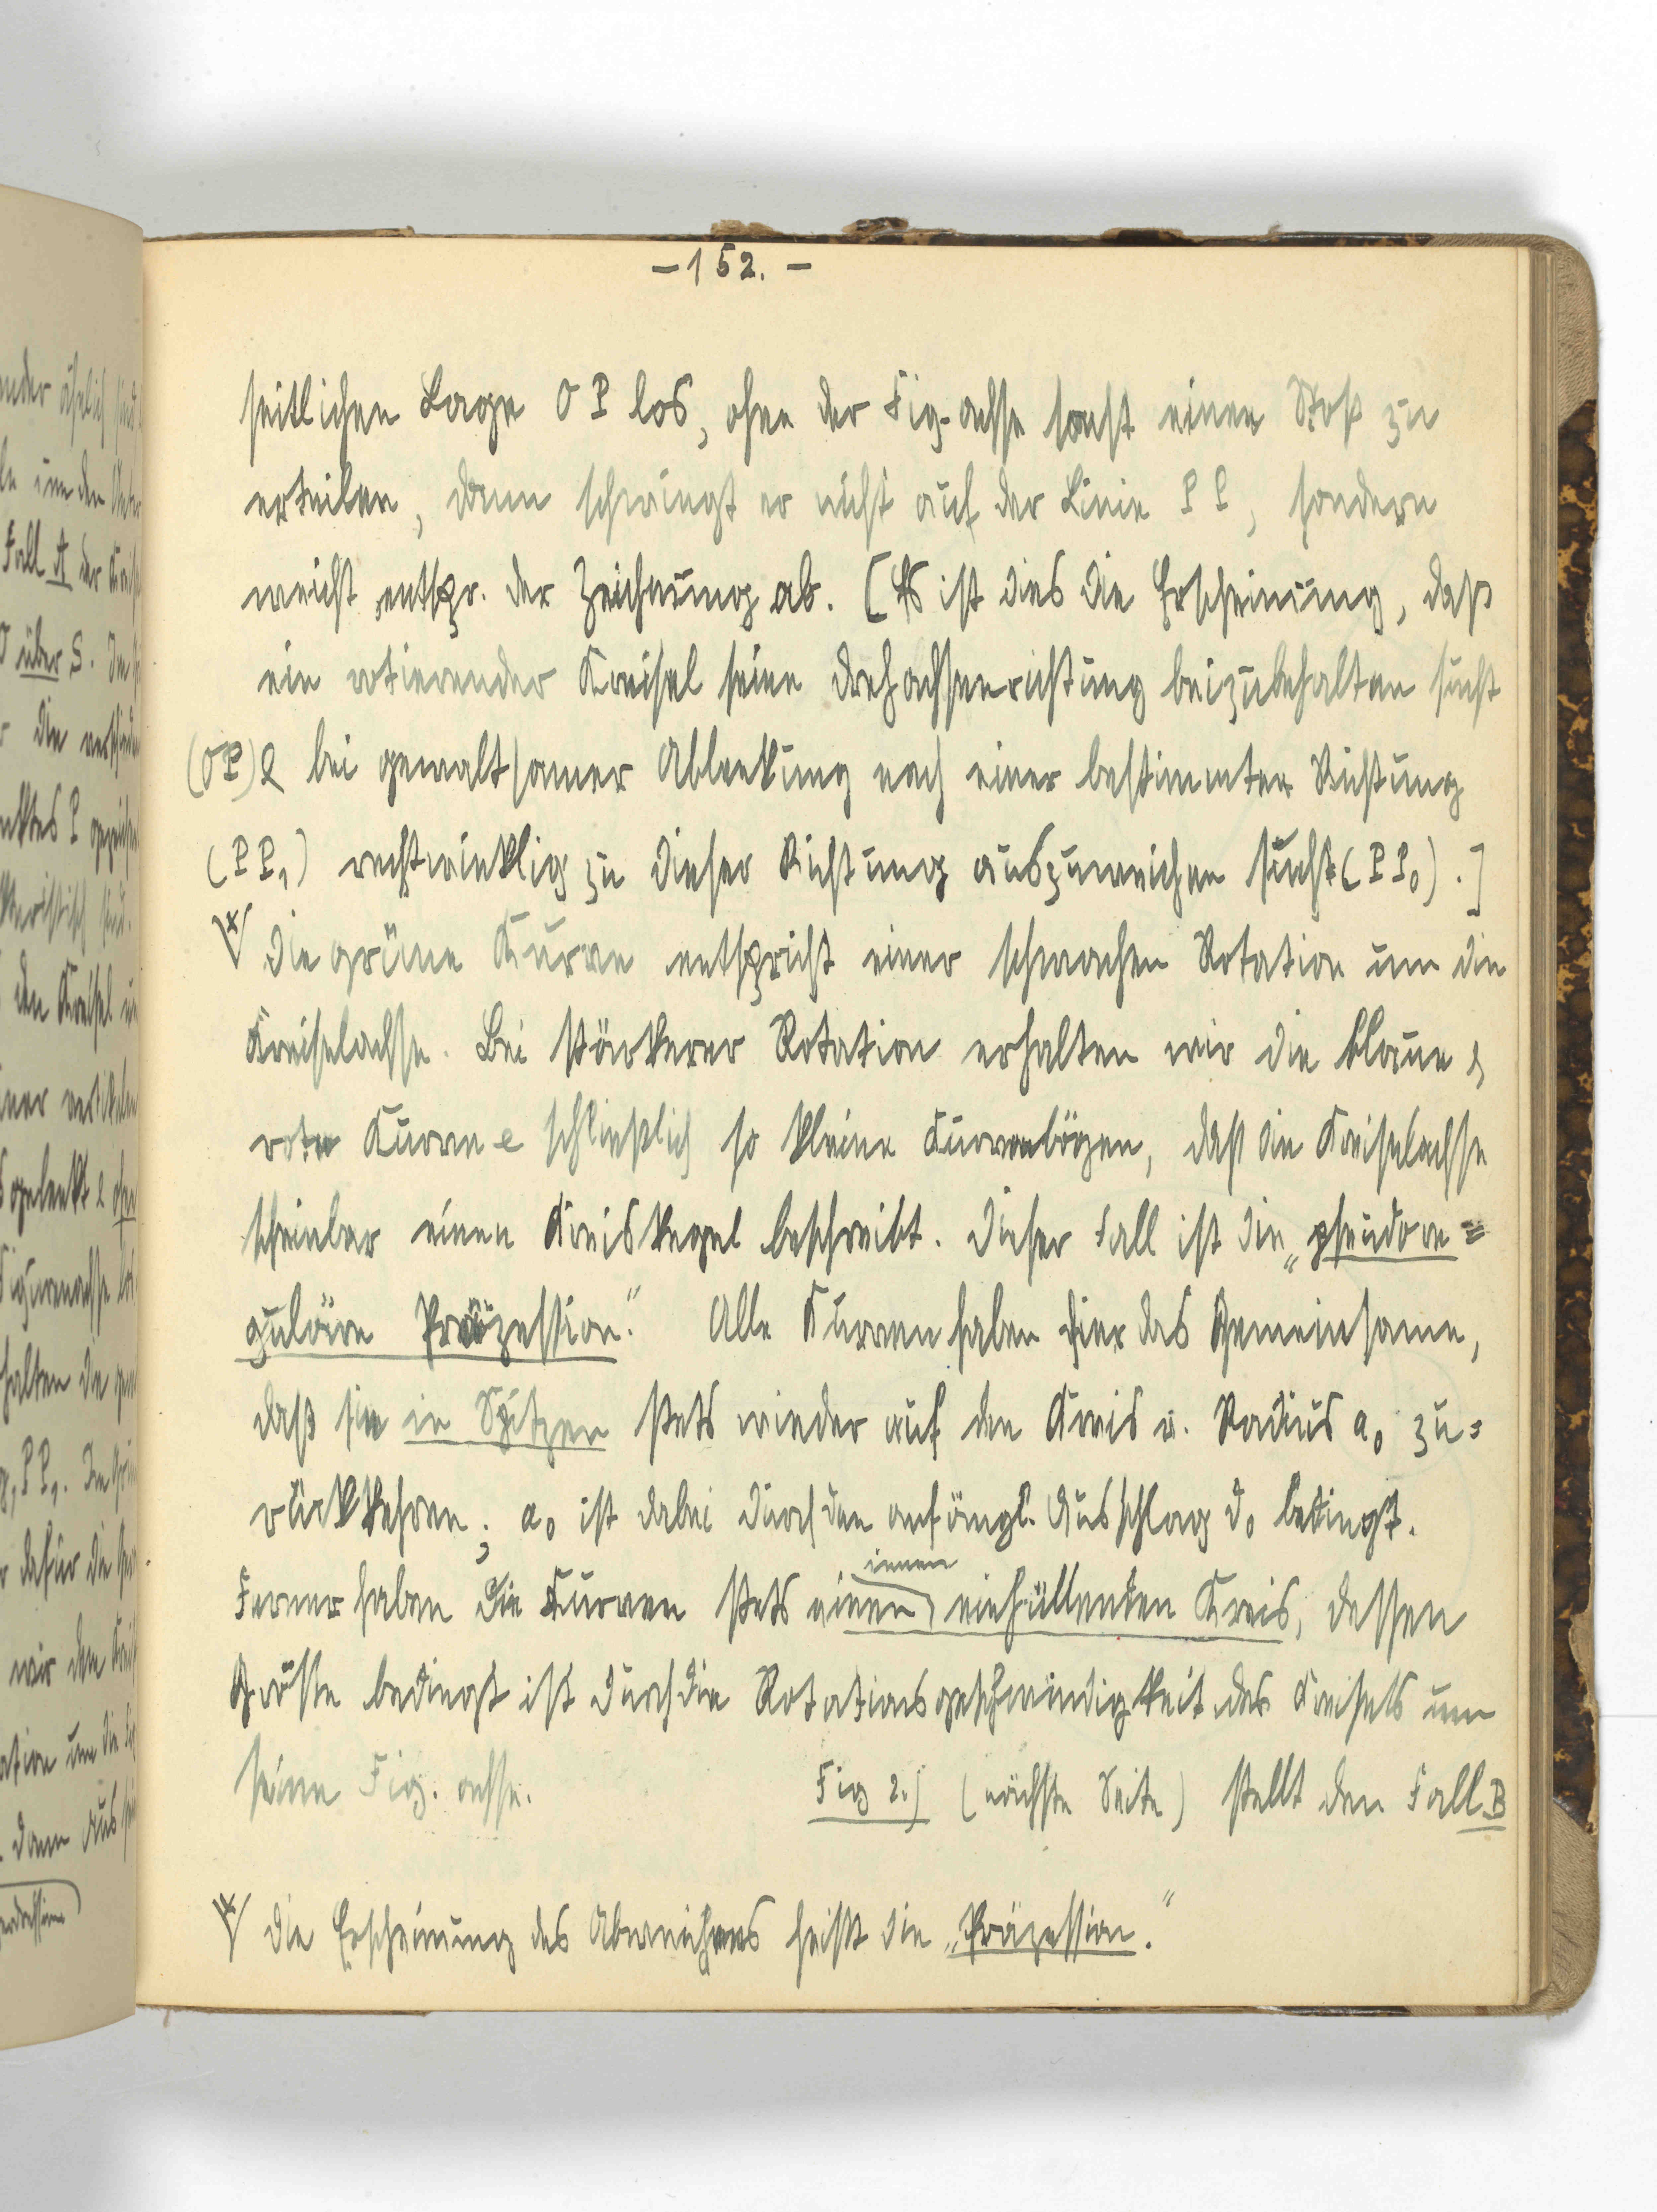 - 152. -
seitlichen Lage OP los, ohne der Fig.achse sonst einen Stoß zu
erteilen, dann schwingt er nicht auf der Linie PP, sondern
weicht entspr. der Zeichnung ab. [Es ist dies die Erscheinung, daß
ein rotierender Kreisel seine Drehachsenrichtung beizubehalten sucht
(OP) & bei gewaltsamer Ablenkung nach einer bestimmten Richtung
(PP₁) rechtwinklig zu dieser Richtung auszuweichen sucht (PP₀).]
Die grüne Kurve entspricht einer schwachen Rotation um die
Kreiselachse. Bei stärkerer Rotation erhalten wir die blaue &
rote Kurve & schließlich so kleine Kurvenbögen, daß die Kreiselachse
scheinbar einen Kreiskegel beschreibt. Dieser Fall ist die „pseudore=
guläre Präzession." Alle Kurven haben hier das Gemeinsame,
daß sie in Spitzen stets wieder auf den Kreis v. Radius a₀ zu=
rückkehren; a₀ ist dabei durch den anfängl. Ausschlag d₀ bedingt.
innen
Ferner haben die Kurven stets einen einhüllenden Kreis, dessen
Größe bedingt ist durch die Rotationsgeschwindigkeit des Kreisels um
seine Fig.achse. Fig 2.) (nächste Seite) stellt den Fall B
Die Erscheinung des Abweichens heißt die „Präzession."
über S.
Fall A der